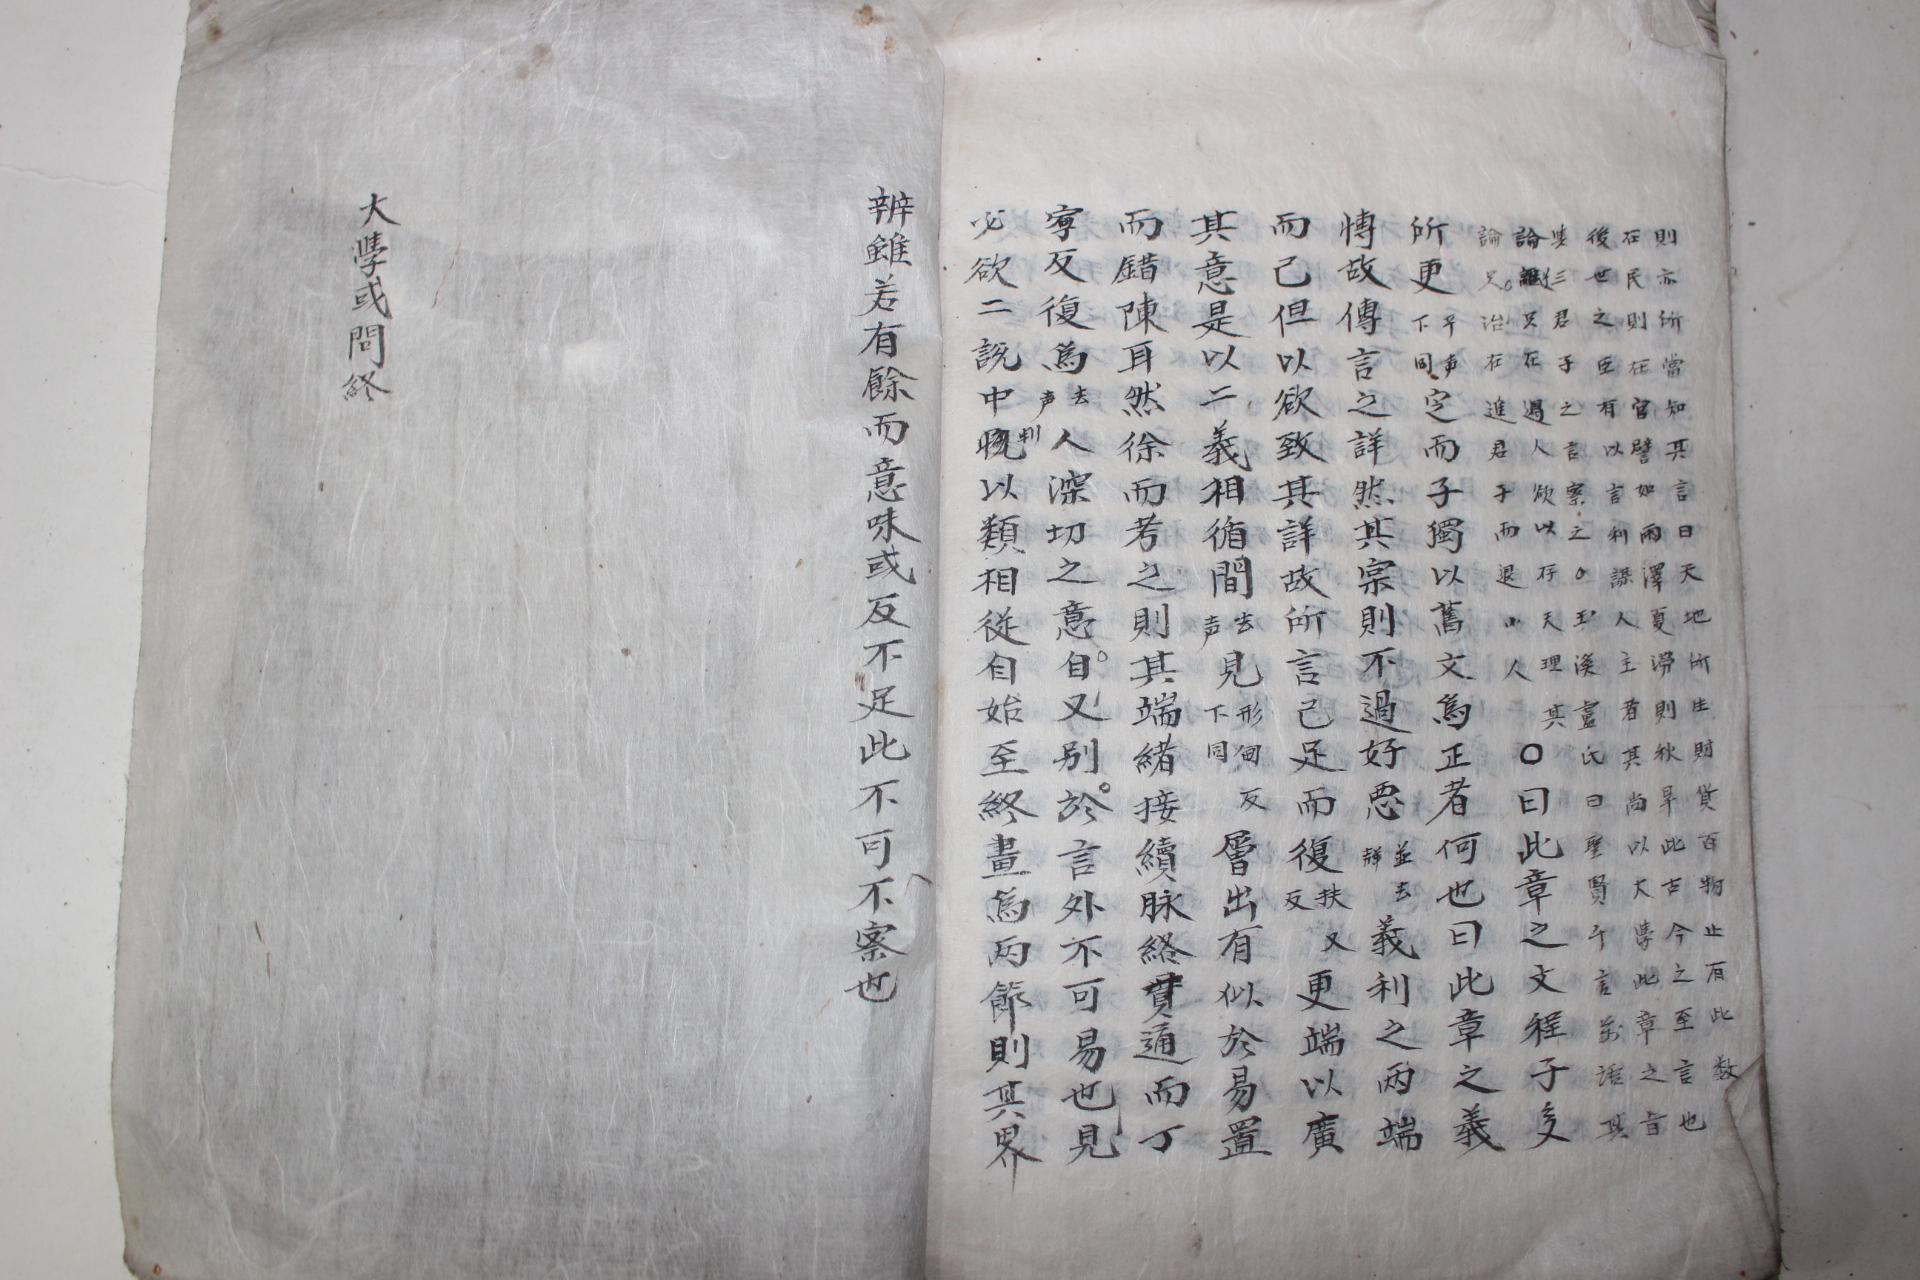 則亦所當知其言曰天地所生財貨百物止有此数
在民則在官譬如雨澤夏澇則秋旱此古今之至言也
後世之臣有以言利誤人主者其尚以大學此章之旨
與三君子之言察之○玉溪盧氏曰聖賢千言萬語其
論只在遏人欲以存天理其
論只治在進君子而退小人
○曰此章之文程子多
所更平声下同定而子獨以舊文爲正者何也曰此章之義
博故傳言之詳然其宗則不過好惡並去聲義利之两端
而已但以欲致其詳故所言已足而復扶又反更端以廣
其意是以二義相循間去声見形甸反下同層出有似於易置
而錯陳耳然徐而考之則其端緒接續脉絡貫通而丁
寧反復爲去声人深切之意自又別於言外不可易也見
必欲二説中判以類相從自始至終畫爲两節則其界
辨雖若有餘而意味或反不足此不可不察也
大學或問終